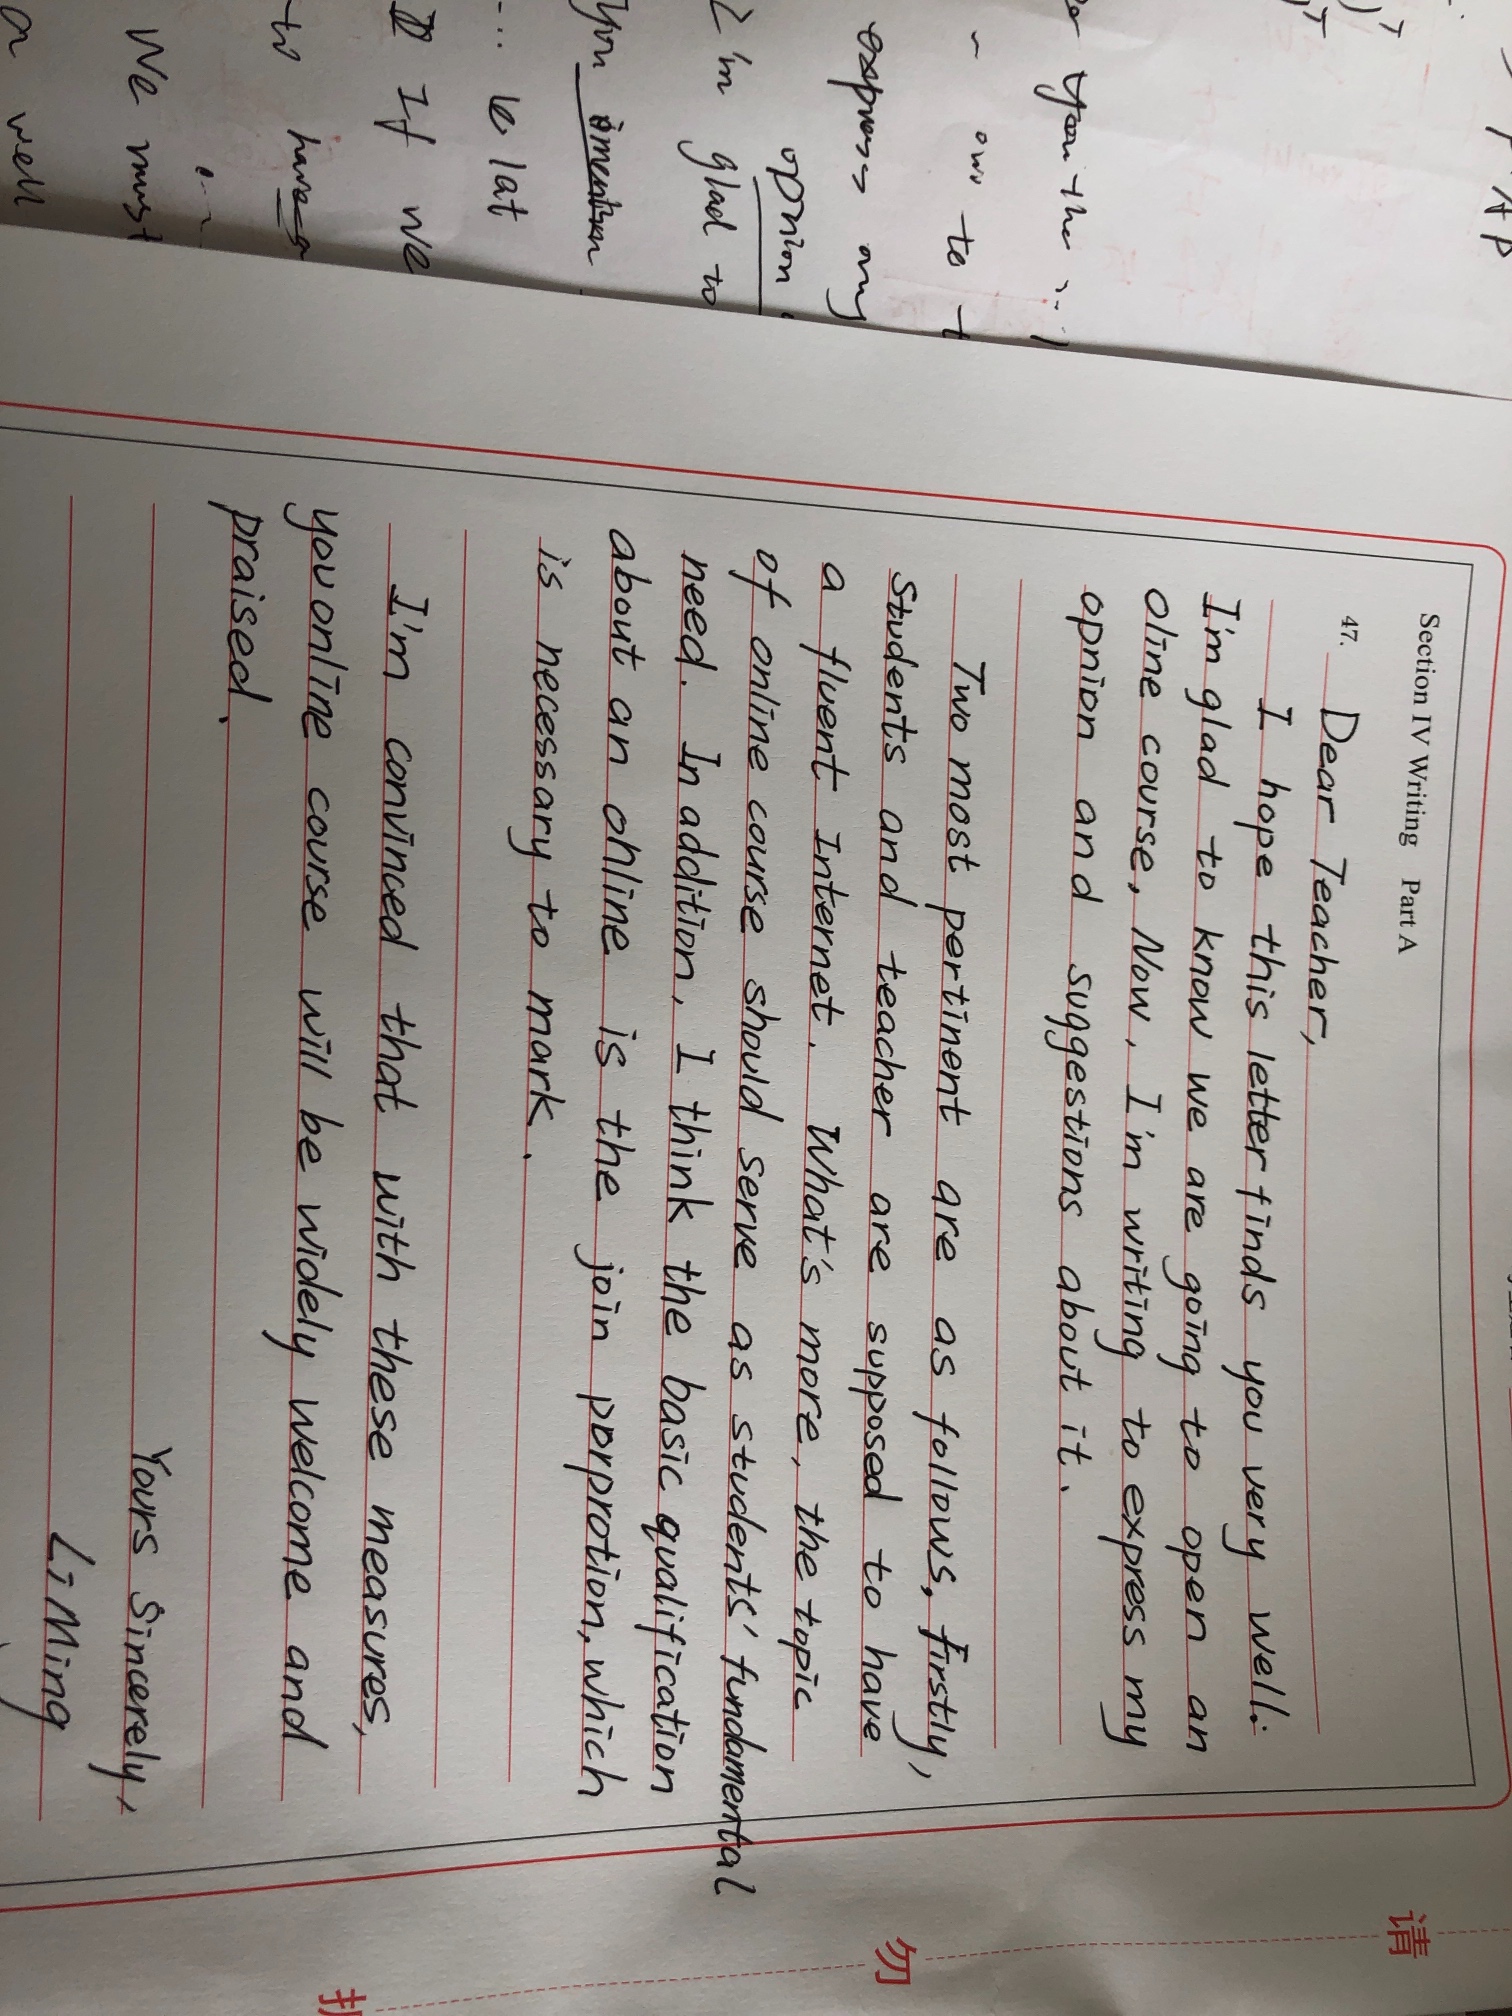 Section IV Writing Part A
47. Dear Teacher,
I hope this letter finds you very well.
I'm glad to know we are going to open an
oline course. Now, I'm writing to express my
opnion and suggestions about it.
Two most pertinent are as follows, firstly,
students and teacher are supposed to have
a fluent Internet. What's more, the topic
of online course should serve as students' fundamental
need. In addition, I think the basic qualification
about an online is the join porprotion, which
is necessary to mark.
I'm convinced that with these measures,
you online course will be widely welcome and
praised.
Yours Sincerely,
Li Ming
you the ...
to t
express my
opnion.
I'm glad to
you
... lat
If we
to have a
We must
a well
请
勿